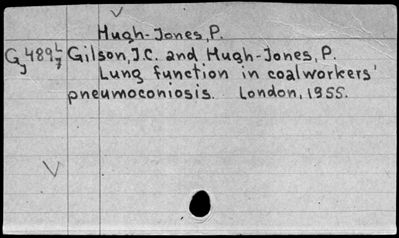 Hugh-Jones, P.
Gilson, J.C. and Hugh-Jones, P.
Lung function in coalworkers'
pneumoconiosis. London, 1955.